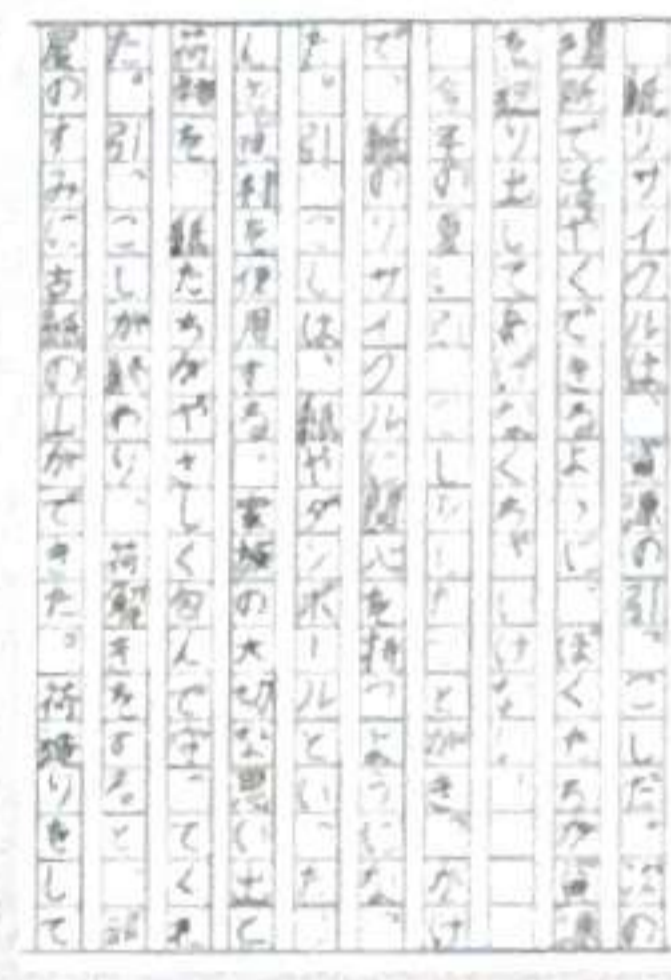 紙リサイクルは、資源の引っこしだ。次の
場所で活やくできるように、ぼくたちが資源
を送り出してあげなくちゃいけない。
今年の夏に引っこしをしたことがきっかけ
で、紙のリサイクルに関心を持つようになっ
た。引っこしは、紙やダンボールといった
しょう材を使用する。家族の大切な思い出と
荷物を、紙たちがやさしく包んで守ってくれ
た。引っこしが終わり、荷解きをすると、部
屋のすみに古紙の山ができた。荷造りをして